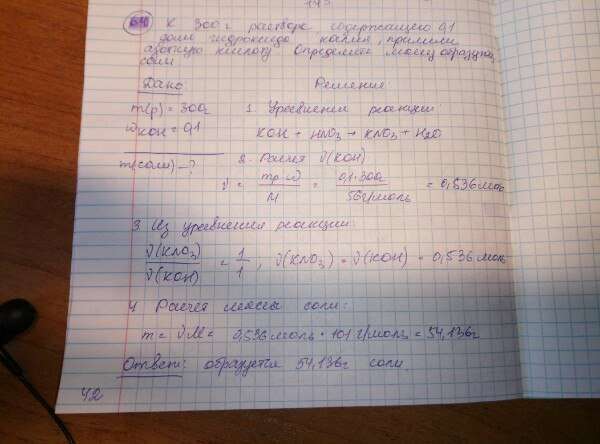 К 300г раствора содержащего 0,1
доле гидроксида калия, прилили
азотную кислоту Определите массу образующ.
соли
Дано: Решение:
m(р) = 300г 1. Уравнение реакции
ω KOH = 0,1 KOH + HNO₃ → KNO₃ + H₂O
m(соли) - ? 2. Расчет ν(KOH)
ν = mр·ω / M = 0,1·300г / 56г/моль = 0,536 моль
3 Из уравнения реакции:
ν(KNO₃) / ν(KOH) = 1/1, ν(KNO₃) = ν(KOH) = 0,536 моль
4 Расчет массы соли:
m = ν·M = 0,536 моль · 101 г/моль = 54,136г
Ответ: образуется 54,136г соли
42